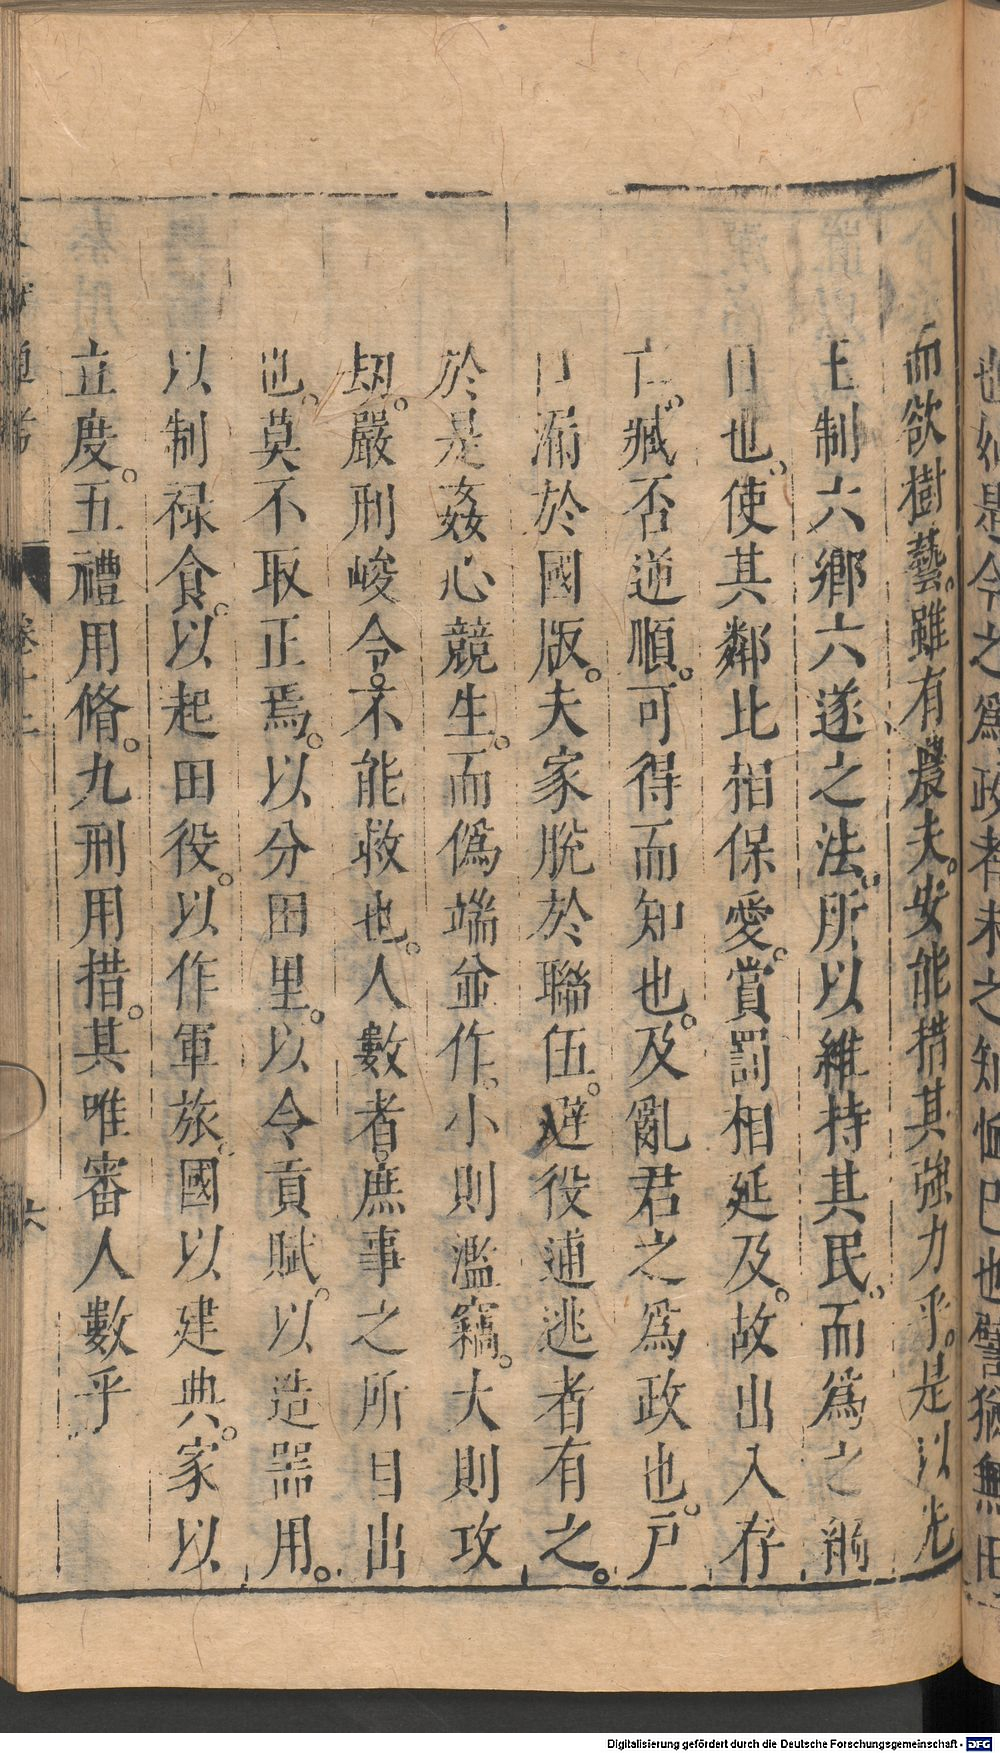 也如是令之爲政者未之知恤已也譬猶無田
而欲樹藝。雖有農夫。安能措其強力乎。是以先
王制六鄉六遂之法。所以維持其民。而爲之綱
目也。使其鄰比相保愛。賞罰相延及。故出入存
亡。臧否逆順。可得而知也。及亂君之爲政也。戶
口漏於國版。夫家脫於聯伍。避役逋逃者有之。
於是姦心競生。而僞端並作。小則濫竊。大則攻
刼。嚴刑峻令。不能救也。人數者。庶事之所自出
也。莫不取正焉。以分田里。以令貢賦。以造器用。
以制祿食。以起田役。以作軍旅。國以建典。家以
立度。五禮用脩。九刑用措。其唯審人數乎
通考
六
Digitalisierung gefördert durch die Deutsche Forschungsgemeinschaft - DFG